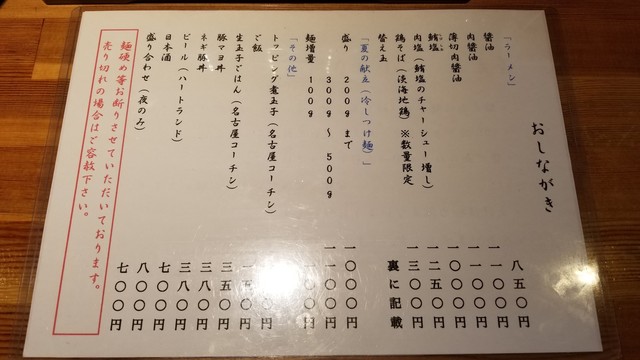 おしながき
「ラーメン」
醤油 八五〇円
肉醤油 一一〇〇円
薄切肉醤油 一一〇〇円
鮪塩 一〇〇〇円
肉塩（鮪塩のチャーシュー増し） 一二五〇円
鶏そば（淡海地鶏）※数量限定 一三〇〇円
替え玉 裏に記載
「夏の献立（冷しつけ麺）」
盛り 200gまで 一〇〇〇円
300g～500g 一一〇〇円
麺増量 100g 円
「その他」
トッピング煮玉子（名古屋コーチン） 円
ご飯 円
生玉子ごはん（名古屋コーチン） 三五〇円
豚マヨ丼 三八〇円
ネギ豚丼 三八〇円
ビール（ハートランド） 七〇〇円
日本酒 八〇〇円
盛り合わせ（夜のみ） 七〇〇円
麺硬め等お断りさせていただいております。
売り切れの場合はご容赦下さい。